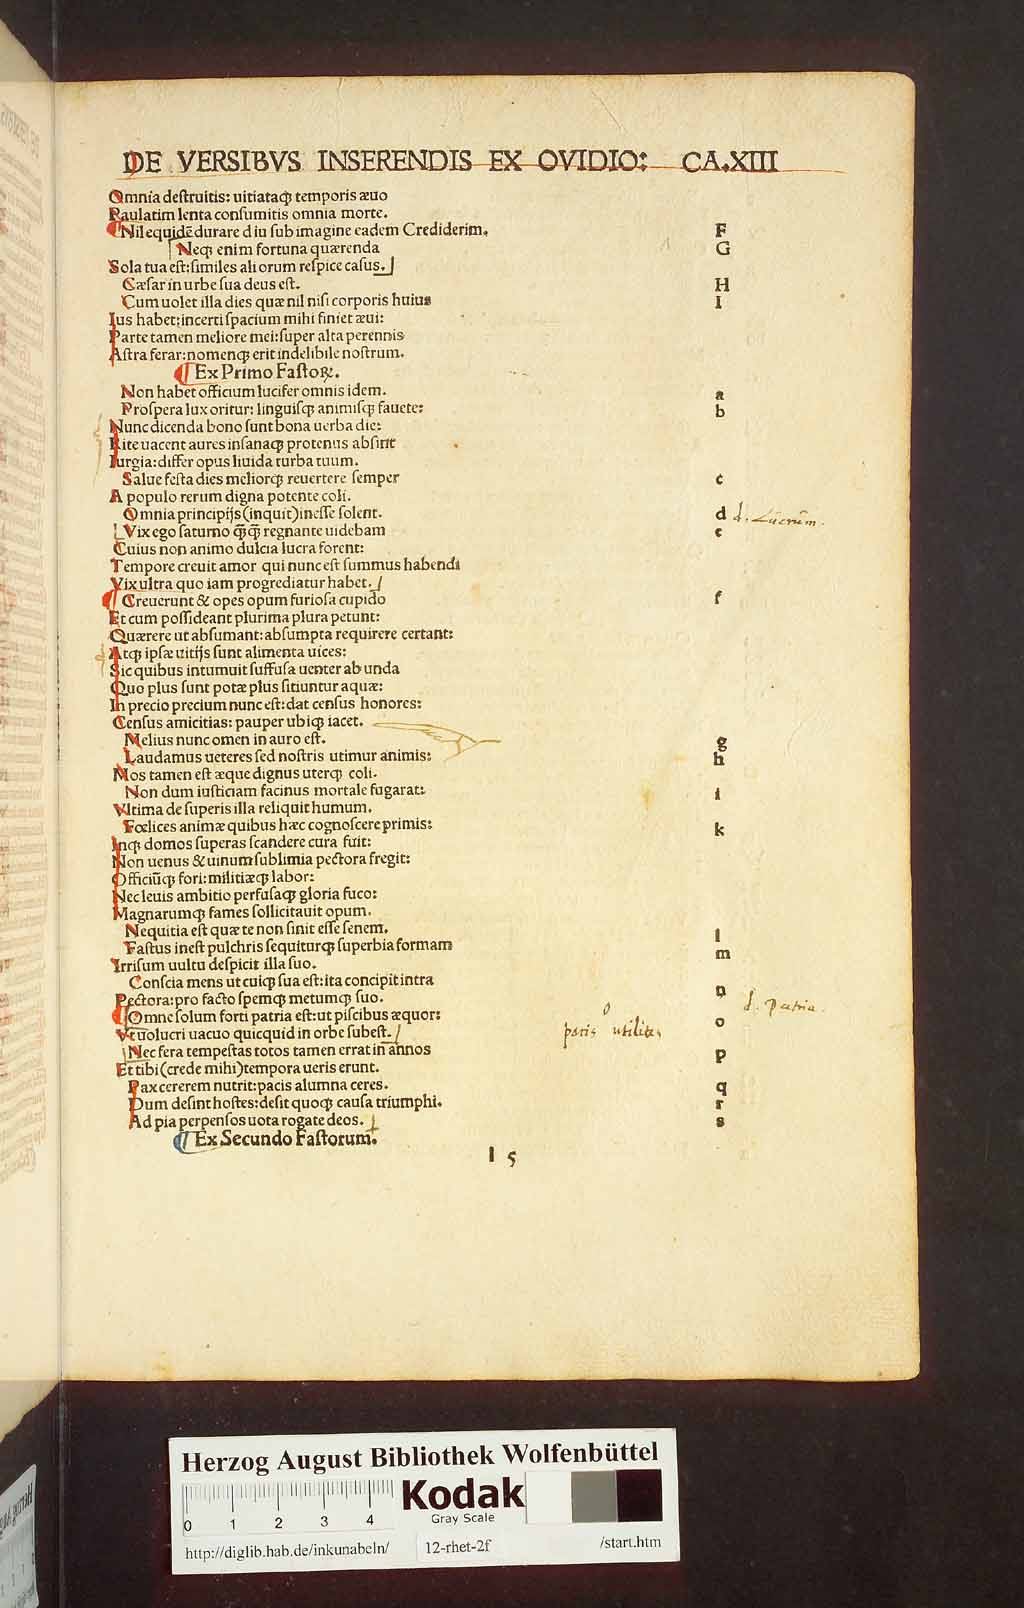 DE VERSIBVS INSERENDIS EX OVIDIO: CA.XIII
Omnia deſtruitis: uitiataqꝫ temporis æuo
Paulatim lenta conſumitis omnia morte.
Nil equidē durare diu ſub imagine eadem Crediderim. F
Neqꝫ enim fortuna quærenda G
Sola tua eſt: ſimiles aliorum reſpice caſus.
Cæſar in urbe ſua deus eſt. H
Cum uolet illa dies quæ nil niſi corporis huius I
Ius habet: incerti ſpacium mihi finiet æui:
Parte tamen meliore mei: ſuper alta perennis
Aſtra ferar: nomenqꝫ erit indelibile noſtrum.
Ex Primo Faſtoꝝ.
Non habet officium lucifer omnis idem. a
Proſpera lux oritur: linguiſqꝫ animiſqꝫ fauete: b
Nunc dicenda bono ſunt bona uerba die:
Lite uacent aures inſanaqꝫ protenus abſint
Iurgia: differ opus liuida turba tuum.
Salue feſta dies meliorqꝫ reuertere ſemper c
A populo rerum digna potente coli.
Omnia principijs (inquit) ineſſe ſolent. d d. Lucrum.
Vix ego ſaturno q̄qꝫ regnante uidebam e
Cuius non animo dulcia lucra forent:
Tempore creuit amor qui nunc eſt ſummus habendi
Vix ultra quo iam progrediatur habet.
Creuerunt & opes opum furioſa cupido f
Et cum poſſideant plurima plura petunt:
Quærere ut abſumant: abſumpta requirere certant:
Atqꝫ ipſæ uitijs ſunt alimenta uices:
Sic quibus intumuit ſuffuſa uenter ab unda
Quo plus ſunt potæ plus ſitiuntur aquæ:
In precio precium nunc eſt: dat cenſus honores:
Cenſus amicitias: pauper ubiqꝫ iacet.
Melius nunc omen in auro eſt. g
Laudamus ueteres ſed noſtris utimur animis: h
Mos tamen eſt æque dignus uterqꝫ coli.
Non dum iuſticiam facinus mortale fugarat: i
Vltima de ſuperis illa reliquit humum.
Fœlices animæ quibus hæc cognoſcere primis: k
Inqꝫ domos ſuperas ſcandere cura fuit:
Non uenus & uinum ſublimia pectora fregit:
Officiūqꝫ fori: militiæqꝫ labor:
Nec leuis ambitio perfuſaqꝫ gloria fuco:
Magnarumqꝫ fames ſollicitauit opum.
Nequitia eſt quæ te non ſinit eſſe ſenem. l
Faſtus ineſt pulchris ſequiturqꝫ ſuperbia formam m
Irriſum uultu deſpicit illa ſuo.
Conſcia mens ut cuiqꝫ ſua eſt: ita concipit intra n
Pectora: pro facto ſpemqꝫ metumqꝫ ſuo. d. patria.
Omne ſolum forti patria eſt: ut piſcibus æquor: o
Vt uolucri uacuo quicquid in orbe ſubeſt.
Nec fera tempeſtas totos tamen errat in annos p
Et tibi (crede mihi) tempora ueris erunt.
Pax cererem nutrit: pacis alumna ceres. q
Dum deſint hoſtes: deſit quoqꝫ cauſa triumphi. r
Ad pia perpenſos uota rogate deos. s
Ex Secundo Faſtorum.
I 5
Herzog August Bibliothek Wolfenbüttel
0 1 2 3 4
Kodak
Gray Scale
http://diglib.hab.de/inkunabeln/ 12-rhet-2f /start.htm